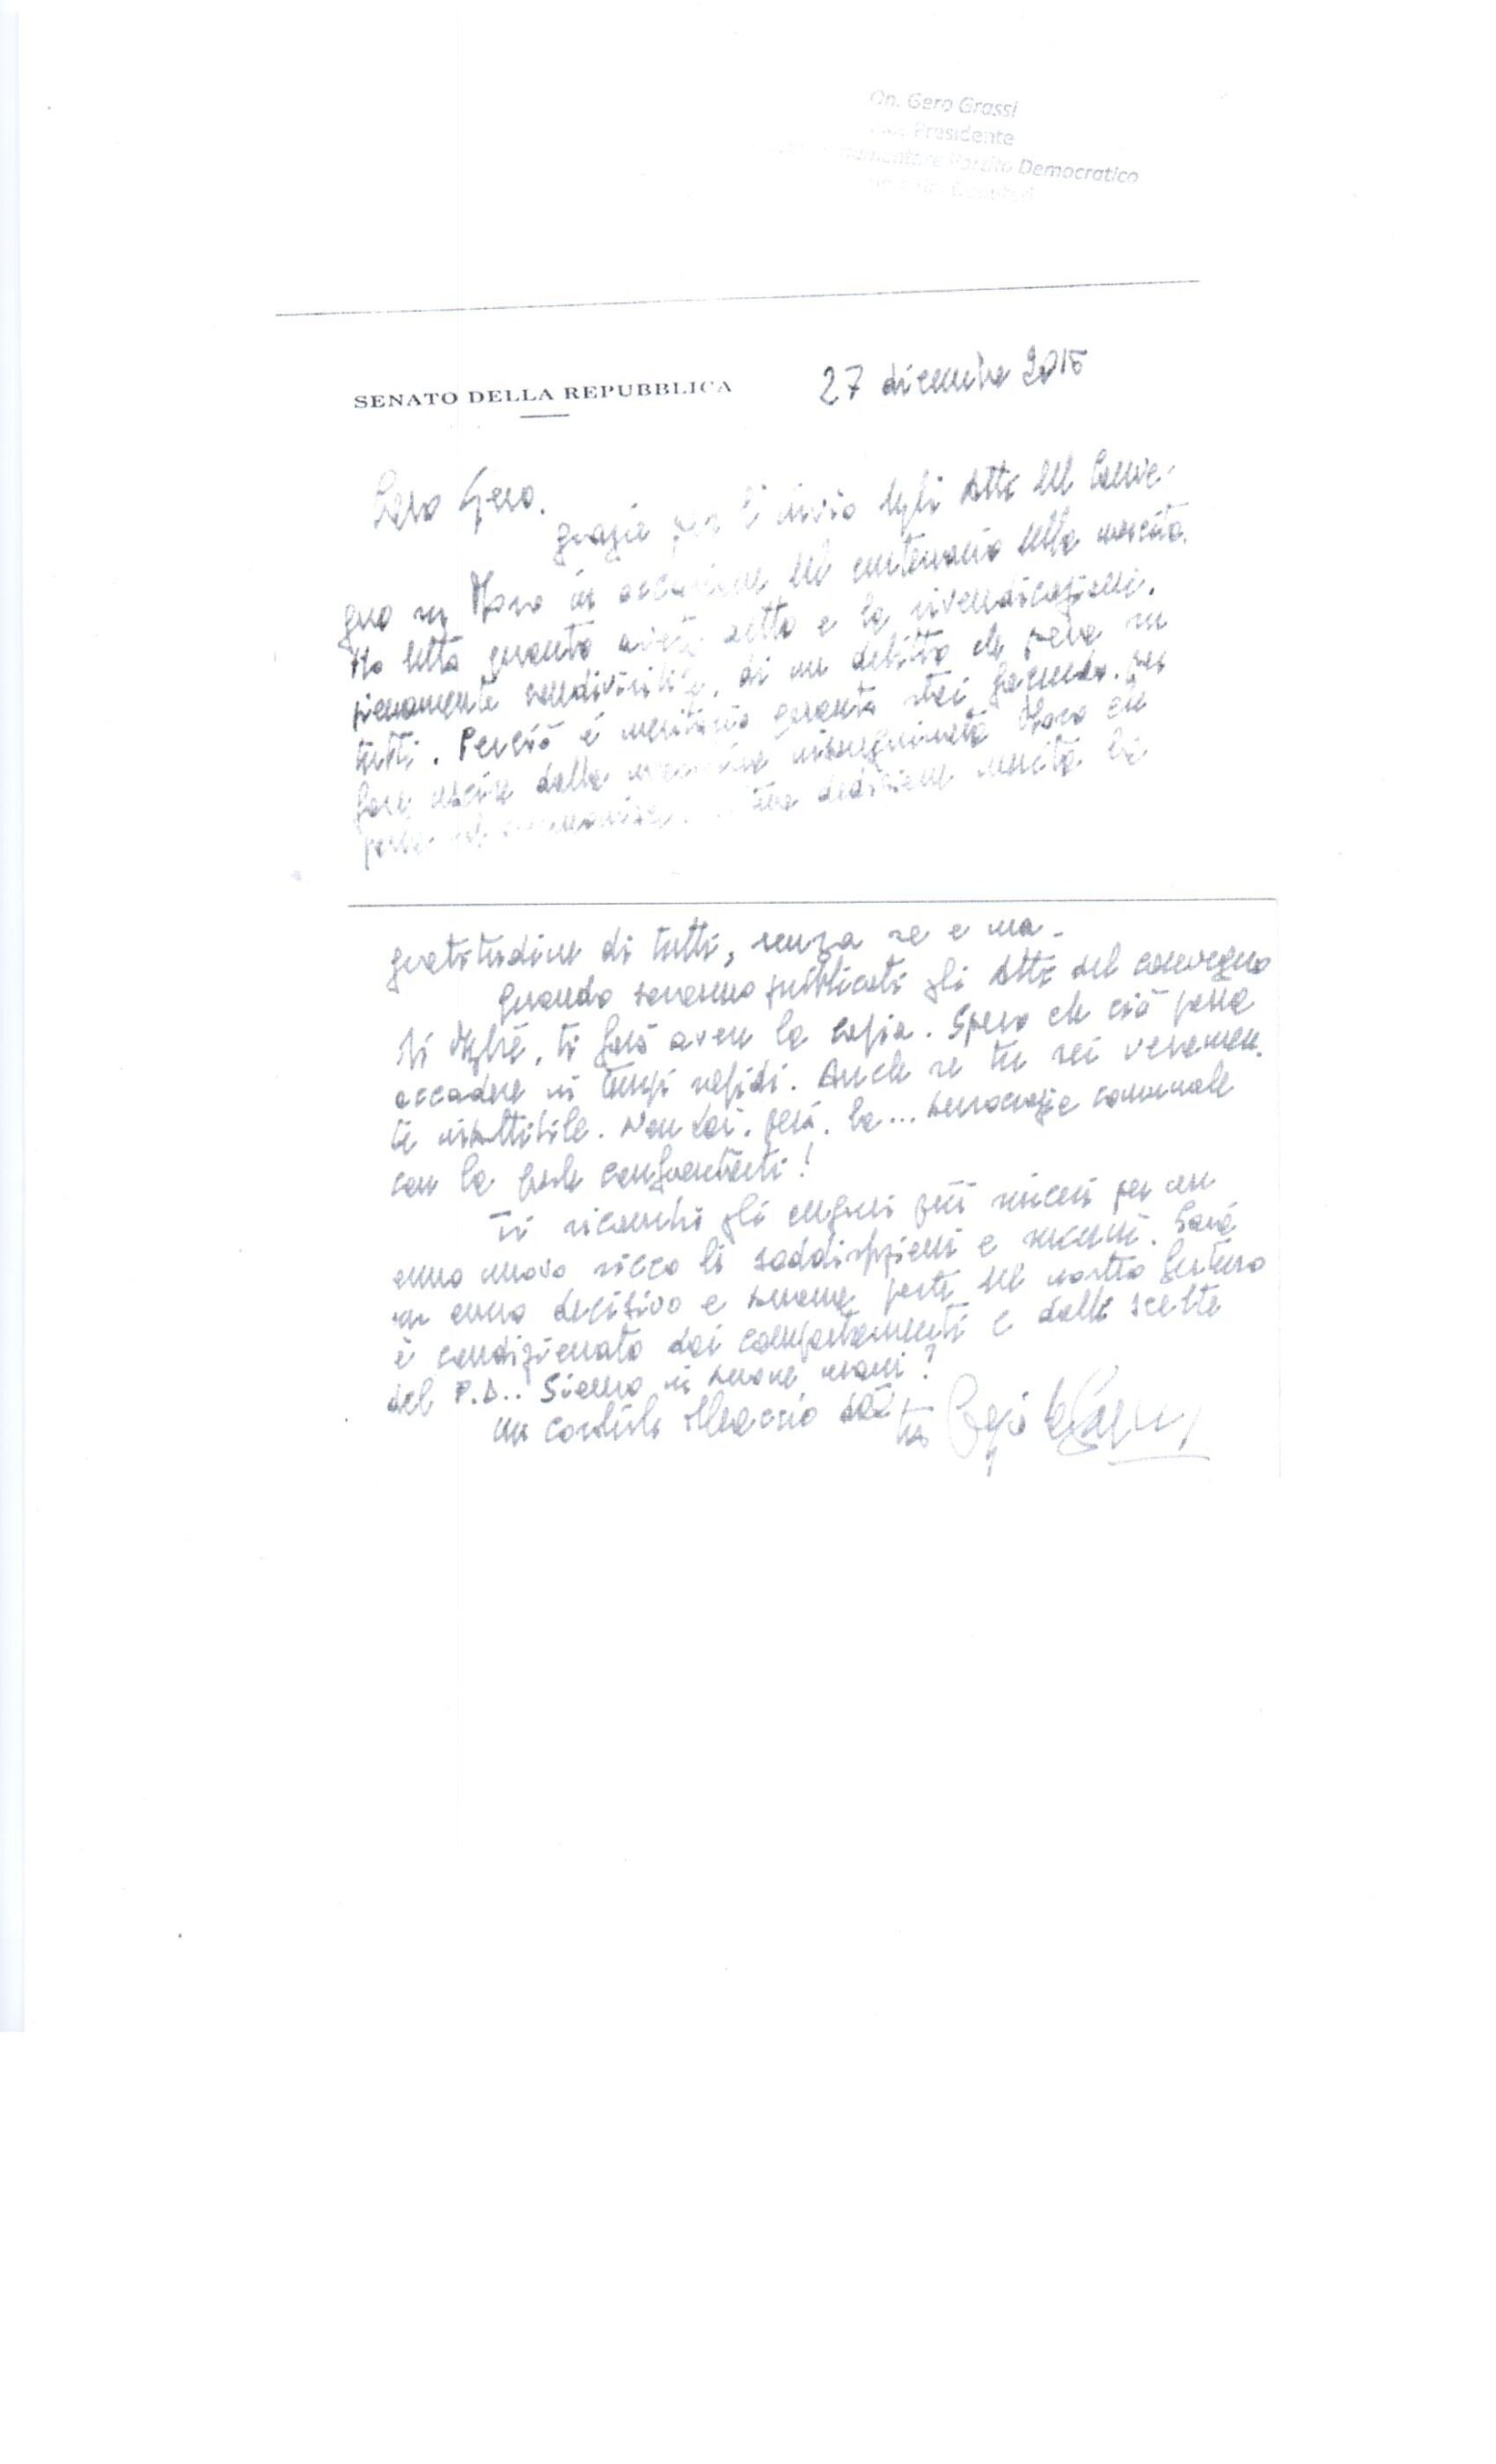 On. Gero Grassi
Presidente
Partito Democratico
SENATO DELLA REPUBBLICA
27 dicembre 2016
Caro Gero.
grazie per l'invio degli Atti del Conve-
gno su Moro in occasione del centenario della nascita.
Ho letto quanto avete detto e la rivendicazione,
pienamente condivisibile, di un debito che pesa su
tutti. Perciò è meritorio quanto stai facendo. per
fare uscire dalla Moro che
tua dedizione merita la
gratitudine di tutti, senza se e ma.
Quando saranno pubblicati gli Atti del convegno
di, ti farò avere la copia. Spero che ciò possa
accadere in tempi rapidi. Anche se tu sei veramen-
te imbattibile. Non hai, però, la... burocrazia comunale
con la quale confrontarti!
Ti ricambio gli auguri più sinceri per un
anno nuovo ricco di soddisfazioni e successi. Sarà
un anno decisivo e buona parte del nostro futuro
è condizionato dai comportamenti e dalle scelte
del P.D.. Siamo in buone mani?
Un cordiale abbraccio dal tuo